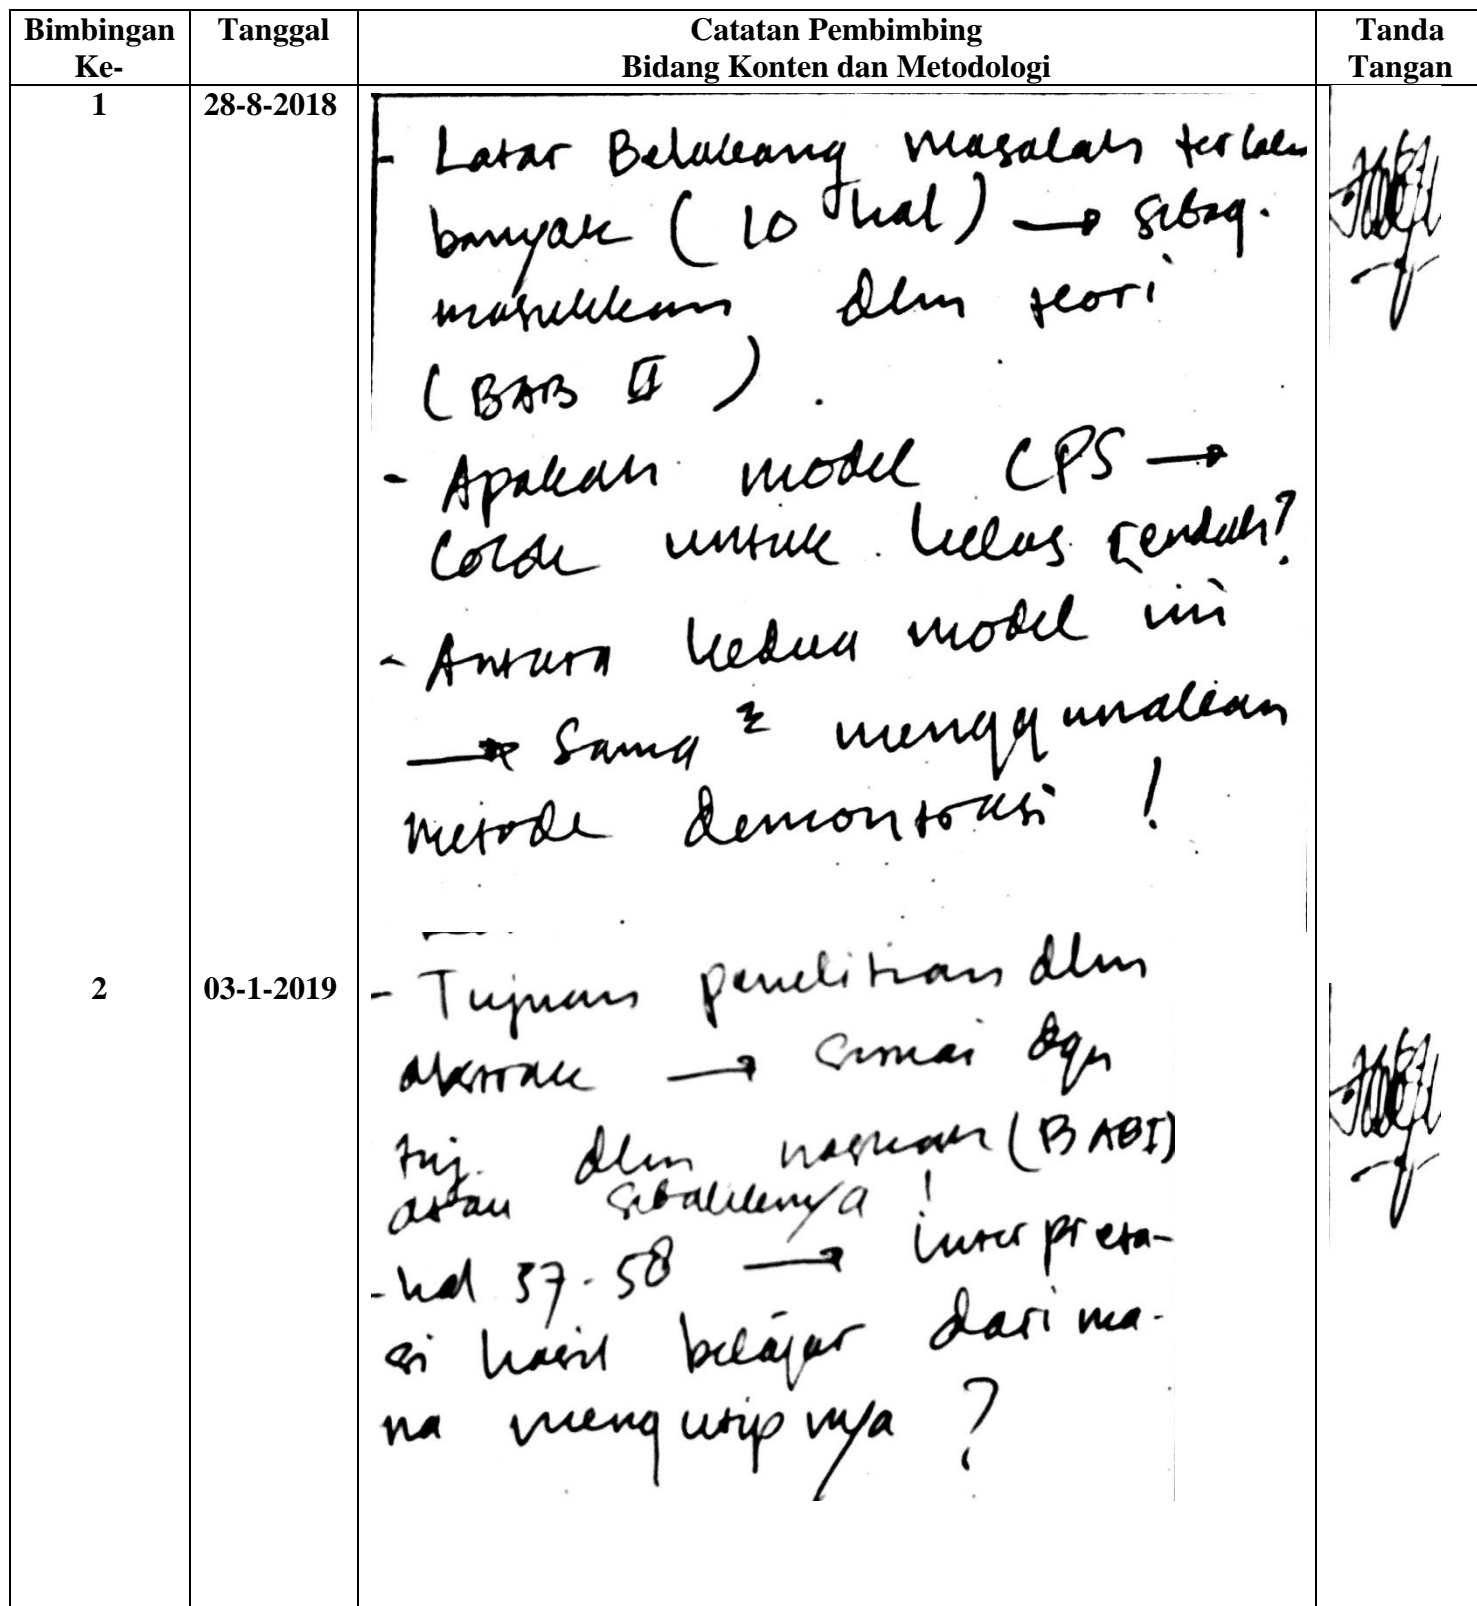 Bimbingan Ke-
Tanggal
Catatan Pembimbing
Bidang Konten dan Metodologi
Tanda Tangan
1
28-8-2018
- Latar Belakang masalah terlalu
banyak (10 hal) → sebag.
masukkan dlm teori
(BAB II).
- Apakah model CPS →
cocok untuk kelas rendah?
- Antara kedua model ini
→ Sama² menggunakan
metode demontrasi !
2
03-1-2019
- Tujuan penelitian dlm
abstrak → sesuai dgn
tuj. dlm naskah (BAB I)
atau sebaliknya !
- hal 37-58 → interpreta-
si hasil belajar dari ma-
na mengutipnya ?